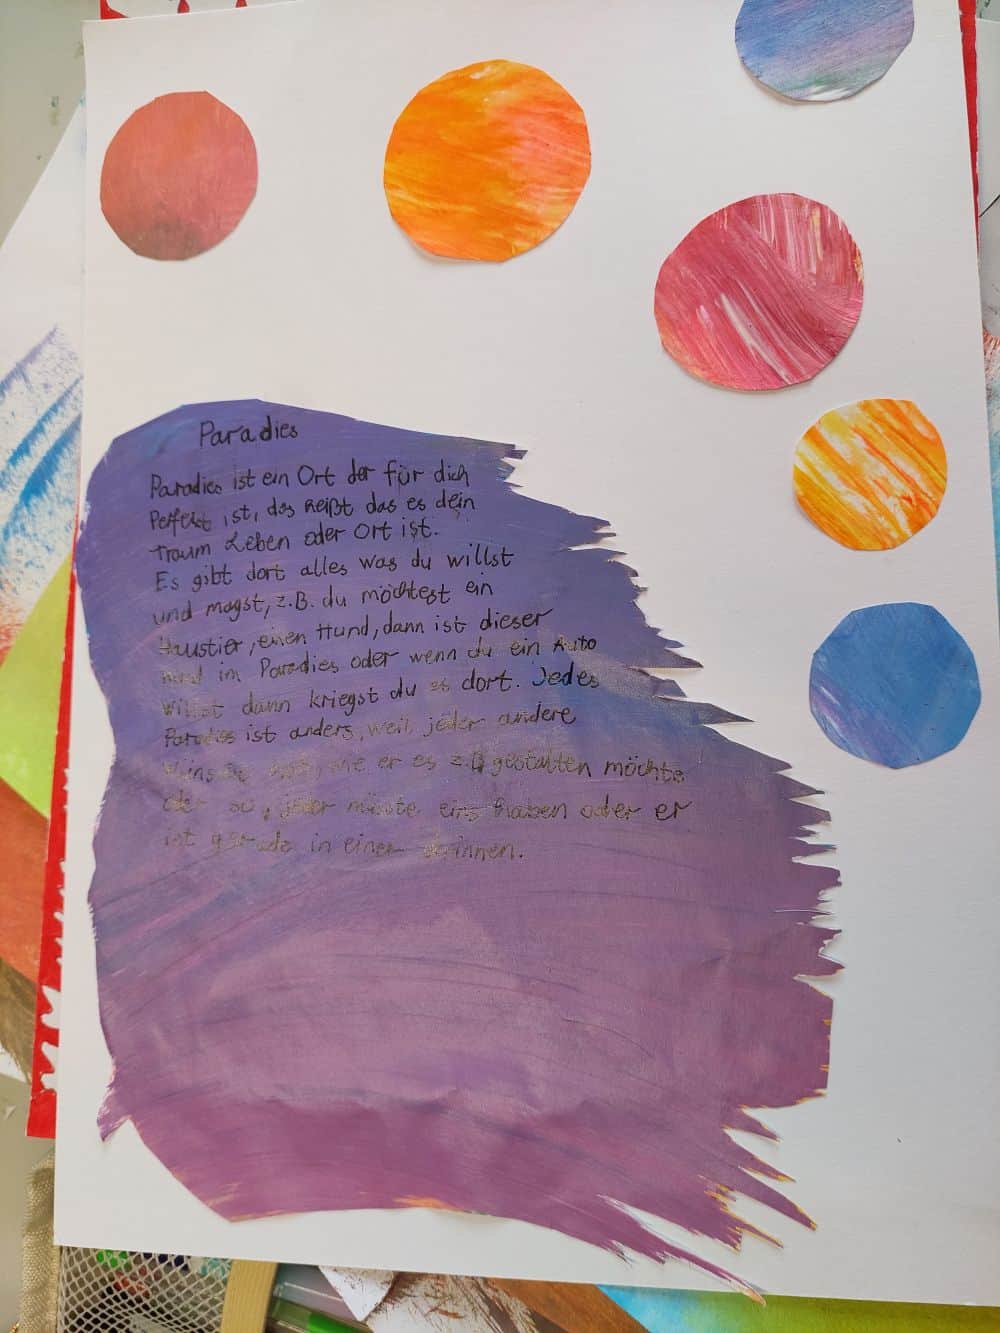 Paradies
Paradies ist ein Ort der für dich
Perfekt ist, das heißt das es dein
traum Leben oder Ort ist.
Es gibt dort alles was du willst
und magst, z.B. du möchtest ein
Haustier, einen Hund, dann ist dieser
Hund im Paradies oder wenn du ein Auto
willst dann kriegst du es dort. Jedes
Paradies ist anders, weil jeder andere
er es z.B gestalten möchte
oder so, jeder möchte eins haben oder er
ist gerade in einem drinnen.